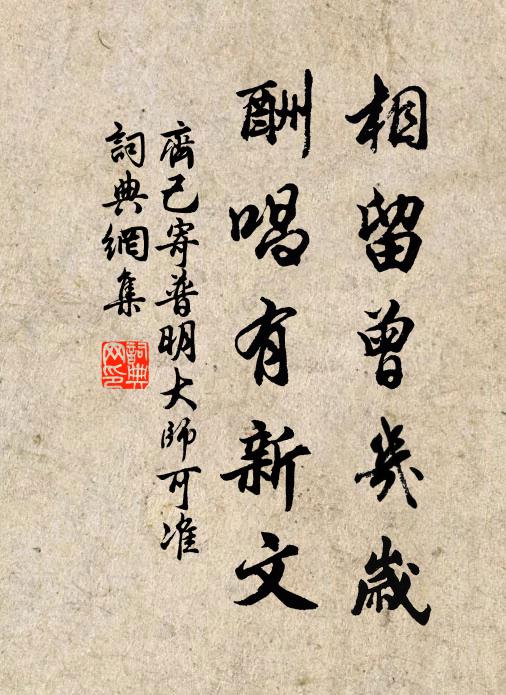 相留曾幾歲
酬唱有新文
齊己寄普明大師可准
詞典網集
詞典网印